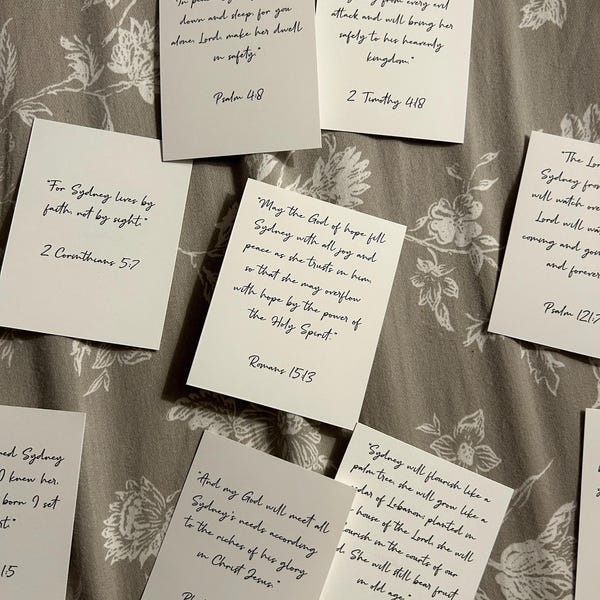 down and sleep, for you
alone, Lord, make her dwell
in safety."
Psalm 4:8
from every evil
attack and will bring her
safely to his heavenly
kingdom."
2 Timothy 4:18
"For Sydney lives by
faith, not by sight."
2 Corinthians 5:7
"May the God of hope fill
Sydney with all joy and
peace as she trusts in him,
so that she may overflow
with hope by the power of
the Holy Spirit."
Romans 15:13
"The Lord
Sydney from
will watch over
Lord will
coming and
and forever
Psalm 121:7
Sydney
I knew her,
born I set
1:5
"And my God will meet all
Sydney's needs according
to the riches of his glory
in Christ Jesus."
"Sydney will flourish like a
palm tree, she will grow like a
of Lebanon; planted in
house of the Lord, she will
in the courts of our
She will still bear fruit
in old age."